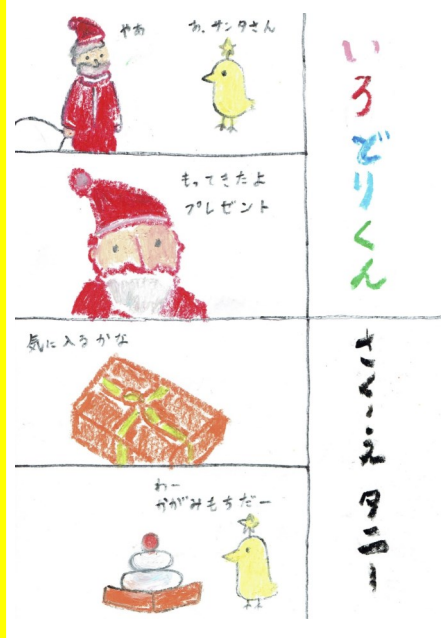 いろどりくん
さく・え タニー
やあ
あ、サンタさん
もってきたよ
プレゼント
気に入るかな
わー
かがみもちだー